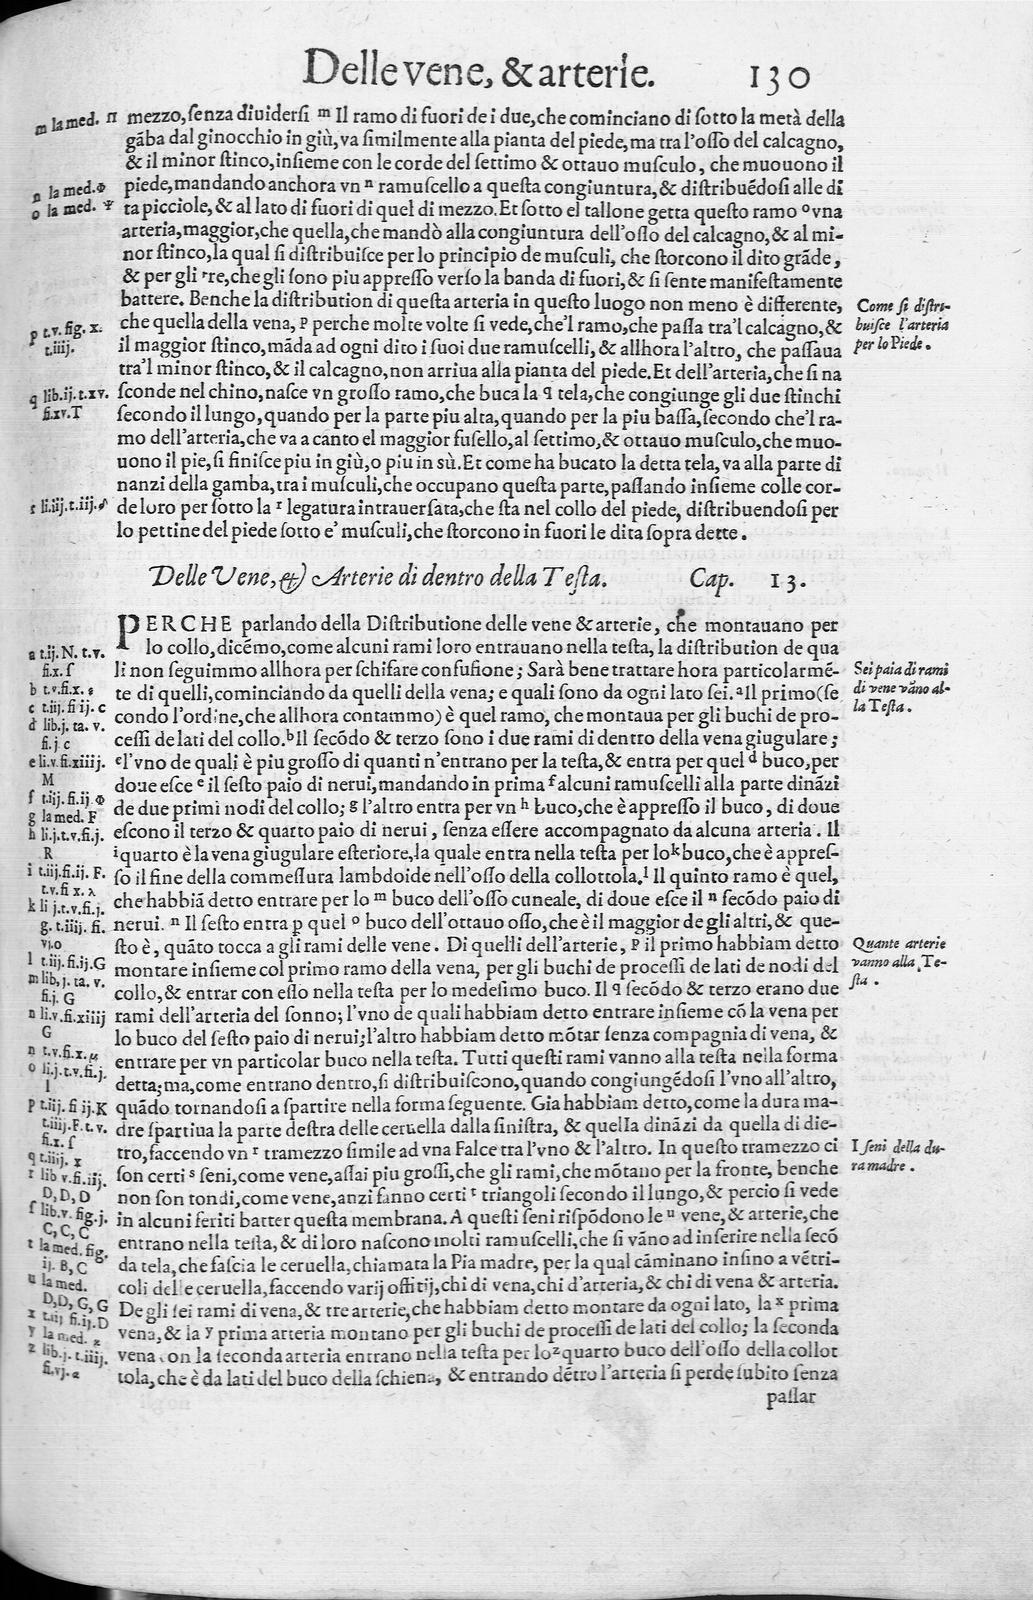 Delle vene, & arterie. 130
m la med. Π
mezzo, ſenza diuiderſi m Il ramo di fuori de i due, che cominciano di ſotto la metà della
gãba dal ginocchio in giù, va ſimilmente alla pianta del piede, ma tra l'oſſo del calcagno,
& il minor ſtinco, inſieme con le corde del ſettimo & ottauo muſculo, che muouono il
n la med. Φ
piede, mandando anchora vn n ramuſcello a queſta congiuntura, & diſtribuẽdoſi alle di
o la med. Ψ
ta picciole, & al lato di fuori di quel di mezzo. Et ſotto el tallone getta queſto ramo o vna
arteria, maggior, che quella, che mandò alla congiuntura dell'oſſo del calcagno, & al mi-
nor ſtinco, la qual ſi diſtribuiſce per lo principio de muſculi, che ſtorcono il dito grãde,
& per gli tre, che gli ſono piu appreſſo verſo la banda di fuori, & ſi ſente manifeſtamente
battere. Benche la diſtribution di queſta arteria in queſto luogo non meno è differente,
Come ſi diſtri-
buiſce l'arteria
per lo Piede.
p t.v. fig. x.
t.iiij.
che quella della vena, p perche molte volte ſi vede, che'l ramo, che paſſa tra'l calcagno, &
il maggior ſtinco, mãda ad ogni dito i ſuoi due ramuſcelli, & allhora l'altro, che paſſaua
tra'l minor ſtinco, & il calcagno, non arriua alla pianta del piede. Et dell'arteria, che ſi na
q lib.ij.t.xv.
fi.xv.T
ſconde nel chino, naſce vn groſſo ramo, che buca la q tela, che congiunge gli due ſtinchi
ſecondo il lungo, quando per la parte piu alta, quando per la piu baſſa, ſecondo che'l ra-
mo dell'arteria, che va a canto el maggior fuſello, al ſettimo, & ottauo muſculo, che muo-
uono il pie, ſi finiſce piu in giù, o piu in sù. Et come ha bucato la detta tela, va alla parte di
nanzi della gamba, tra i muſculi, che occupano queſta parte, paſſando inſieme colle cor-
r li.iij.t.iij.
de loro per ſotto la r legatura intrauerſata, che ſta nel collo del piede, diſtribuendoſi per
lo pettine del piede ſotto e' muſculi, che ſtorcono in fuori le dita ſopra dette.
Delle Vene, & Arterie di dentro della Teſta. Cap. 13.
PERCHE parlando della Diſtributione delle vene & arterie, che montauano per
lo collo, dicẽmo, come alcuni rami loro entrauano nella teſta, la diſtribution de qua
li non ſeguimmo allhora per ſchifare confuſione; Sarà bene trattare hora particolarmẽ-
te di quelli, cominciando da quelli della vena; e quali ſono da ogni lato ſei. a Il primo (ſe
condo l'ordine, che allhora contammo) è quel ramo, che montaua per gli buchi de pro-
ceſſi de lati del collo. b Il ſecõdo & terzo ſono i due rami di dentro della vena giugulare;
c l'vno de quali è piu groſſo di quanti n'entrano per la teſta, & entra per quel d buco, per
doue eſce e il ſeſto paio di nerui, mandando in prima f alcuni ramuſcelli alla parte dinãzi
de due primi nodi del collo; g l'altro entra per vn h buco, che è appreſſo il buco, di doue
eſcono il terzo & quarto paio di nerui, ſenza eſſere accompagnato da alcuna arteria. Il
i quarto è la vena giugulare eſteriore, la quale entra nella teſta per lo k buco, che è appreſ-
ſo il fine della commeſſura lambdoide nell'oſſo della collottola. l Il quinto ramo è quel,
che habbiã detto entrare per lo m buco dell'oſſo cuneale, di doue eſce il n ſecõdo paio di
nerui. n Il ſeſto entra p quel o buco dell'ottauo oſſo, che è il maggior de gli altri, & que-
ſto è, quãto tocca a gli rami delle vene. Di quelli dell'arterie, p il primo habbiam detto
montare inſieme col primo ramo della vena, per gli buchi de proceſſi de lati de nodi del
collo, & entrar con eſſo nella teſta per lo medeſimo buco. Il q ſecõdo & terzo erano due
rami dell'arteria del ſonno; l'vno de quali habbiam detto entrare inſieme cõ la vena per
lo buco del ſeſto paio di nerui; l'altro habbiam detto mõtar ſenza compagnia di vena, &
entrare per vn particolar buco nella teſta. Tutti queſti rami vanno alla teſta nella forma
detta; ma, come entrano dentro, ſi diſtribuiſcono, quando congiungẽdoſi l'vno all'altro,
quãdo tornandoſi a ſpartire nella forma ſeguente. Gia habbiam detto, come la dura ma-
dre ſpartiua la parte deſtra delle ceruella dalla ſiniſtra, & quella dinãzi da quella di die-
tro, faccendo vn r tramezzo ſimile ad vna Falce tra l'vno & l'altro. In queſto tramezzo ci
ſon certi s ſeni, come vene, aſſai piu groſſi, che gli rami, che mõtano per la fronte, benche
non ſon tondi, come vene, anzi fanno certi t triangoli ſecondo il lungo, & percio ſi vede
in alcuni feriti batter queſta membrana. A queſti ſeni riſpõdono le u vene, & arterie, che
entrano nella teſta, & di loro naſcono molti ramuſcelli, che ſi vãno ad inſerire nella ſecõ
da tela, che faſcia le ceruella, chiamata la Pia madre, per la qual cãminano inſino a vẽtri-
coli delle ceruella, faccendo varij offitij, chi di vena, chi d'arteria, & chi di vena & arteria.
De gli ſei rami di vena, & tre arterie, che habbiam detto montare da ogni lato, la x prima
vena, & la y prima arteria montano per gli buchi de proceſſi de lati del collo; la ſeconda
vena con la ſeconda arteria entrano nella teſta per lo z quarto buco dell'oſſo della collot
tola, che è da lati del buco della ſchiena, & entrando dẽtro l'arteria ſi perde ſubito ſenza
paſſar
a t.ij. N. t.v.
fi.x. ſ
b t.v.fi.x.
c t.iij. fi ij. c
d lib.j. ta. v.
fi.j. c
e li.v.fi.xiiij.
M
f t.iij.fi.ij Φ
g la med. F
h li.j.t.v.fi.j.
R
i t.iij.fi.ij. F.
t.v.fi x. λ
k li j.t.v.fi.j.
g. t.iiij. fi.
vj.o
l t.iij.fi.ij.G
m lib, j. ta. v.
fi.j. G
n li.v.fi.xiiij
G
n t.v.fi.x. μ
o li.j.t.v.fi.j.
l
p t.iij. fi ij.K
t.iiij.F.t.v.
fi.x. ſ
q t.iiij. x
r lib v.fi.iij.
D, D, D
ſ lib.v. fig.j.
C, C, C
t la med. fig.
ij. B, C
u la med.
D, D, G, G
x t.iij fi.ij.D
y la med. z
z lib.j. t.iiij.
fi.vj. a
Sei paia di rami
di vene vãno al-
la Teſta.
Quante arterie
vanno alla Te-
ſta.
I ſeni della du-
ra madre.